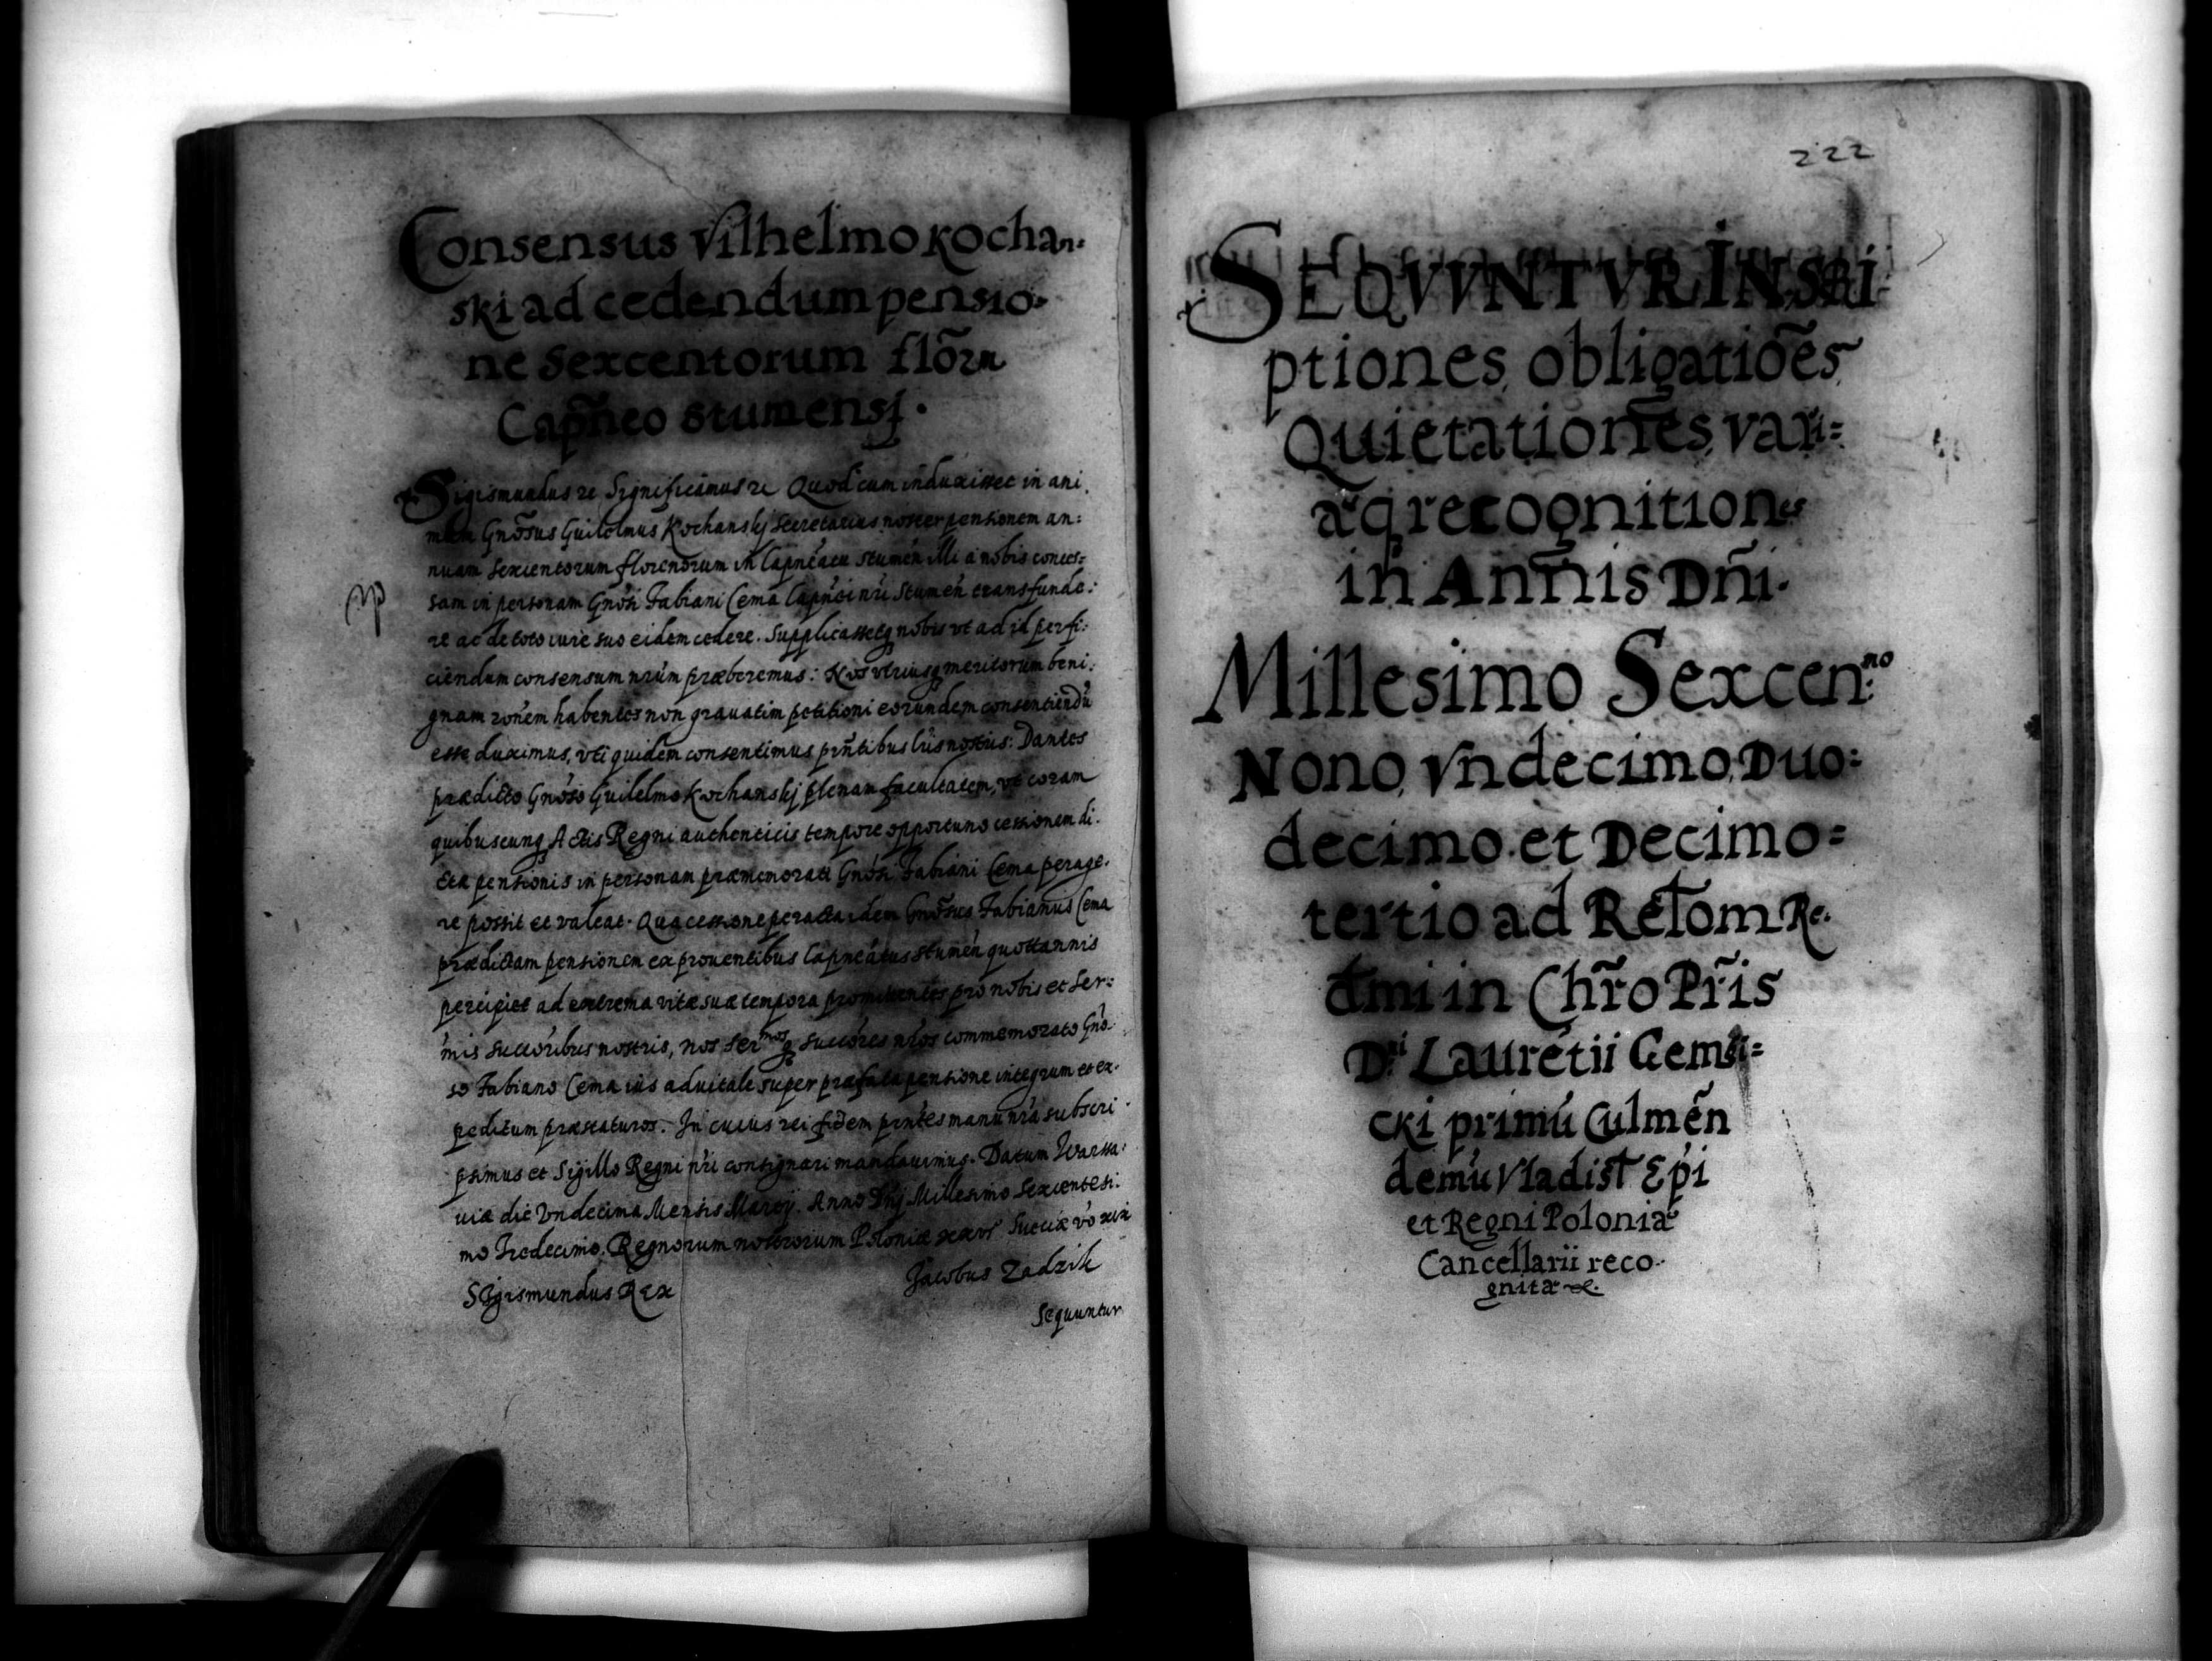 Consensus Vilhelmo Kochan=
ski ad cedendum pensio=
ne Sexcentorum flõrn
Capñeo Stumensj.
Sigismundus ze Significamus ze Quod cum induxisset in ani.
mum Gnõsus Guilelmus Kochanskj Secretarius noster pensionem an=
nuam Sexcentorum florenorum in Capneatu Stumeñ illi a nobis conces=
sam in personam Gnosi Fabiani Cema Capnei nri Stumeñ transfunde=
re ac de toto iure suo eidem cedere. Supplicassetq nobis vt ad id perfi=
ciendum consensum nrũm præberemus: Nos vtriusq meritorum beni:
gnam rõnem habentes non grauatim petitioni eorundem consentiendũ
esse duximus, vti quidem consentimus prñtibus lris nostris: Dantes
prædicto Gnoso Guilelmo Kochanskj plenam facultatem, vt coram
quibuscunq Actis Regni authenticis tempore opportuno cessionem di.
ctæ pensionis in personam præmemorati Gnosi Fabiani Cema perage.
re possit et valeat. Qua cessione peracta idem Gnõsus Fabianus Cema
prædictam pensionem ex prouentibus Capneatus Stumeñ quottannis
percipiet ad extrema vitæ suæ tempora promittentes pro nobis et Ser=
mis Successoribus nostris, nos Sermosq Succores nros commemorato Gno
so Fabiano Cema ius aduitale super præfata pensione integrum et ex.
peditum præstaturos. In cuius rei fidem prntes manu nra subscri
psimus et Sigillo Regni nri consignari mandauimus. Datum Warssa.
uiæ die Vndecima Mensis Marcij. Anno Dnj Millesimo Sexcentesi.
mo Tredecimo. Regnorum nostrorum Poloniæ xxvi Sueciæ vo xix
Sigismundus Rex Jacobus Zadzik
Sequuntur
222
SEQVVNTVR INSKRI=
ptiones, obligatiões
Quietationes, vari=
æq recognitiones
in Annis Dñi.
Millesimo Sexcen:no
Nono, Vndecimo, Duo=
decimo et Decimo=
tertio ad Relom Re.
dmi in Chr̃o Pr̃is
D:ni Lauretii Gembi=
cki primũ Culmeñ
demũ Vladisl Epi
et Regni Poloniæ
Cancellarii reco.
gnitæ